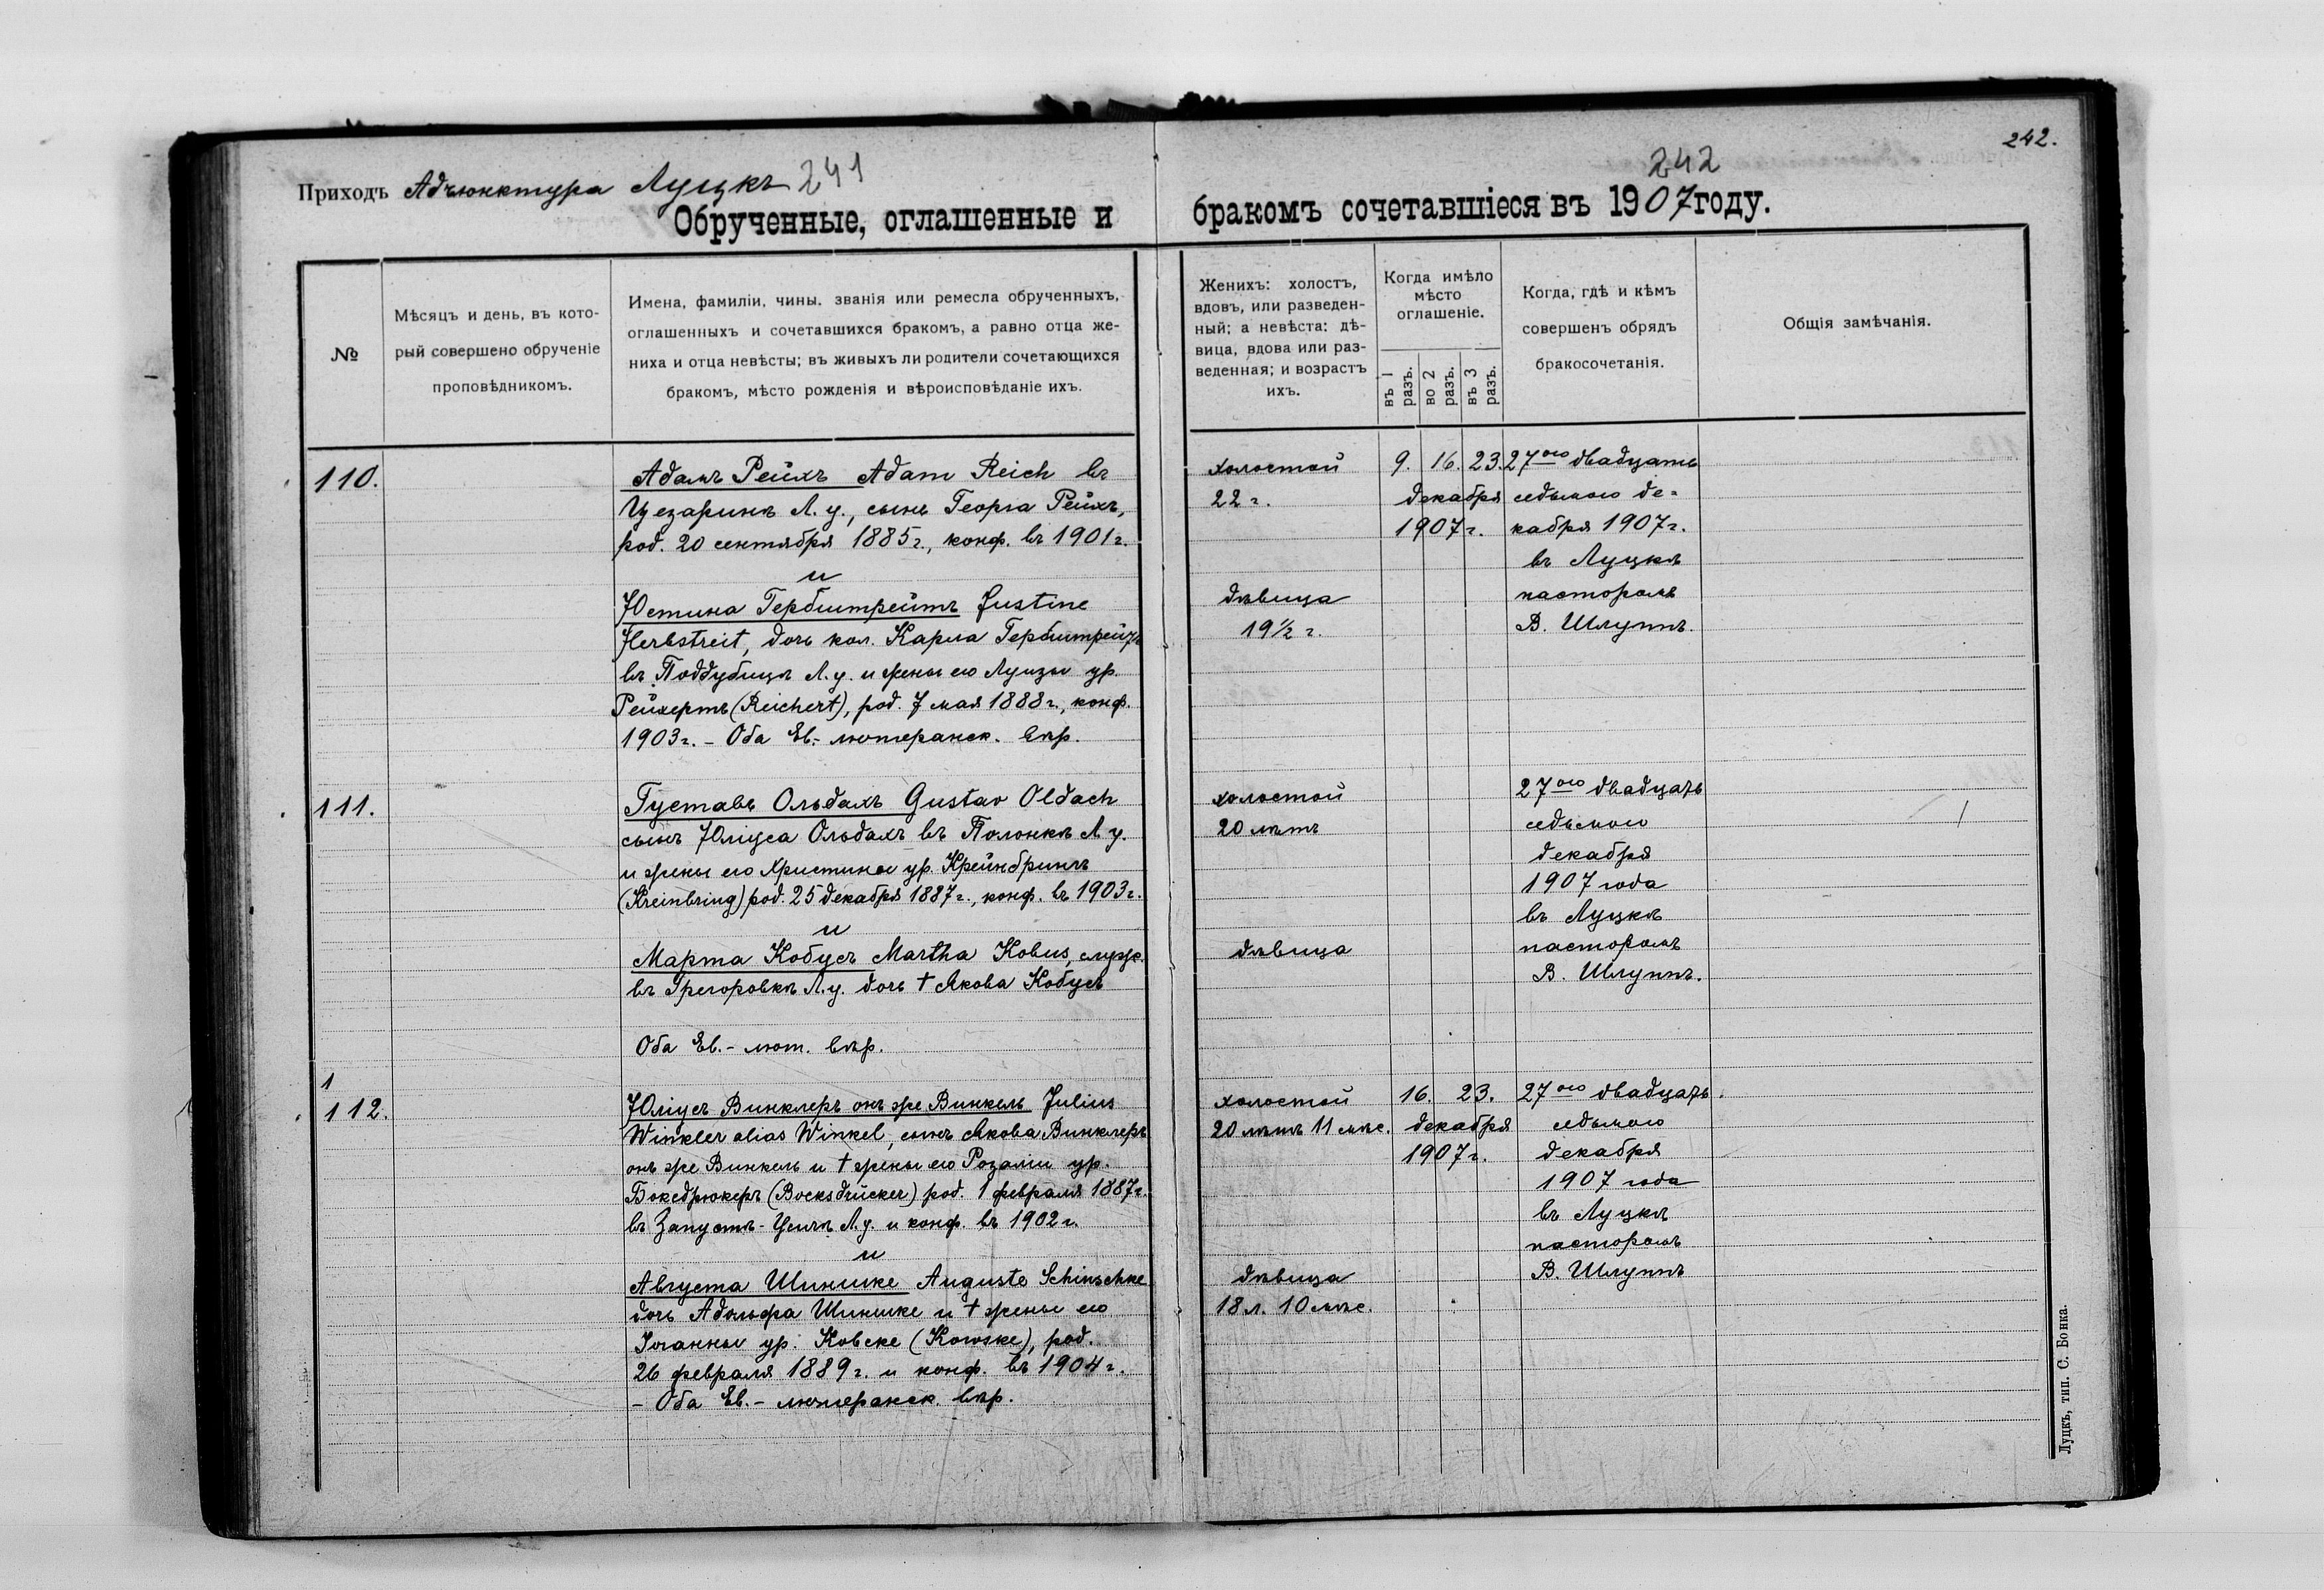 Приходъ Адъюнктура Луцкъ 241
Обрученные, оглашенные и
№
Мѣсяцъ и день, въ кото-
рый совершено обрученіе
проповѣдникомъ.
Имена, фамиліи, чины, званія или ремесла обрученныхъ,
оглашенныхъ и сочетавшихся бракомъ, а равно отца же-
ниха и отца невѣсты; въ живыхъ ли родители сочетающихся
бракомъ, мѣсто рожденія и вѣроисповѣданіе ихъ.
110.
Адамъ Рейхъ Adam Reich въ
Цезаринѣ Л. у., сынъ Георга Рейхъ,
род. 20 сентября 1885 г., конф. въ 1901 г.
и
Юстина Гербштрейтъ Justine
Herbstreit, дочь кол. Карла Гербштрейтъ
въ Поддубицѣ Л. у. и жены его Луизы ур.
Рейхертъ (Reichert), род. 7 мая 1888 г., конф.
1903 г. – Оба Ев.- лютеранск. вѣр.
111.
Густавъ Ольдахъ Gustav Oldach
сынъ Юліуса Ольдахъ въ Полонкѣ Л. у.
и жены его Христины ур. Крейнбрингъ
(Kreinbring) род. 25 декабря 1887 г., конф. въ 1903 г.
и
Марта Кобусъ Martha Kobus, служ.
въ Грегоровкѣ Л. у. дочь † Якова Кобусъ
Оба Ев.- лют. вѣр.
1
112.
Юліусъ Винклеръ онъ же Винкель Julius
Winkler alias Winkel, сынъ Якова Винклеръ
онъ же Винкель и † жены его Розаліи ур.
Боксдрюкеръ (Bocksdrücker) род. 1 февраля 1887 г.
въ Запустъ- Л. у. и конф. въ 1902 г.
и
Августа Шиншке Auguste Schinschke
дочь Адольфа Шиншке и † жены его
Іоганны ур. Ковске (Kowske), род.
26 февраля 1889 г. и конф. въ 1904 г.
– Оба Ев.- лютеранск. вѣр.
242.
242
бракомъ сочетавшіеся въ 1907 году.
Женихъ: холостъ,
вдовъ, или разведен-
ный; а невѣста: дѣ-
вица, вдова или раз-
веденная; и возрастъ
ихъ.
Когда имѣло
мѣсто
оглашеніе.
въ 1 разъ.
во 2 разъ.
въ 3 разъ.
Когда, гдѣ и кѣмъ
совершенъ обрядъ
бракосочетанія.
Общія замѣчанія.
холостой 9. 16. 23. 27ого двадцать
22 г. декабря седьмого де-
1907 г. кабря 1907 г.
въ Луцкѣ
дѣвица пасторомъ
19½ г. В. Шлуппъ.
холостой 27ого двадцать
20 лѣтъ седьмого
декабря
1907 года
въ Луцкѣ
дѣвица пасторомъ
В. Шлуппъ.
холостой 16. 23. 27ого двадцать
20 лѣтъ 11 мѣс. декабря седьмого
1907 г. декабря
1907 года
въ Луцкѣ
пасторомъ
дѣвица В. Шлуппъ
18 л. 10 мѣс.
Луцкъ, тип. С. Бонка.